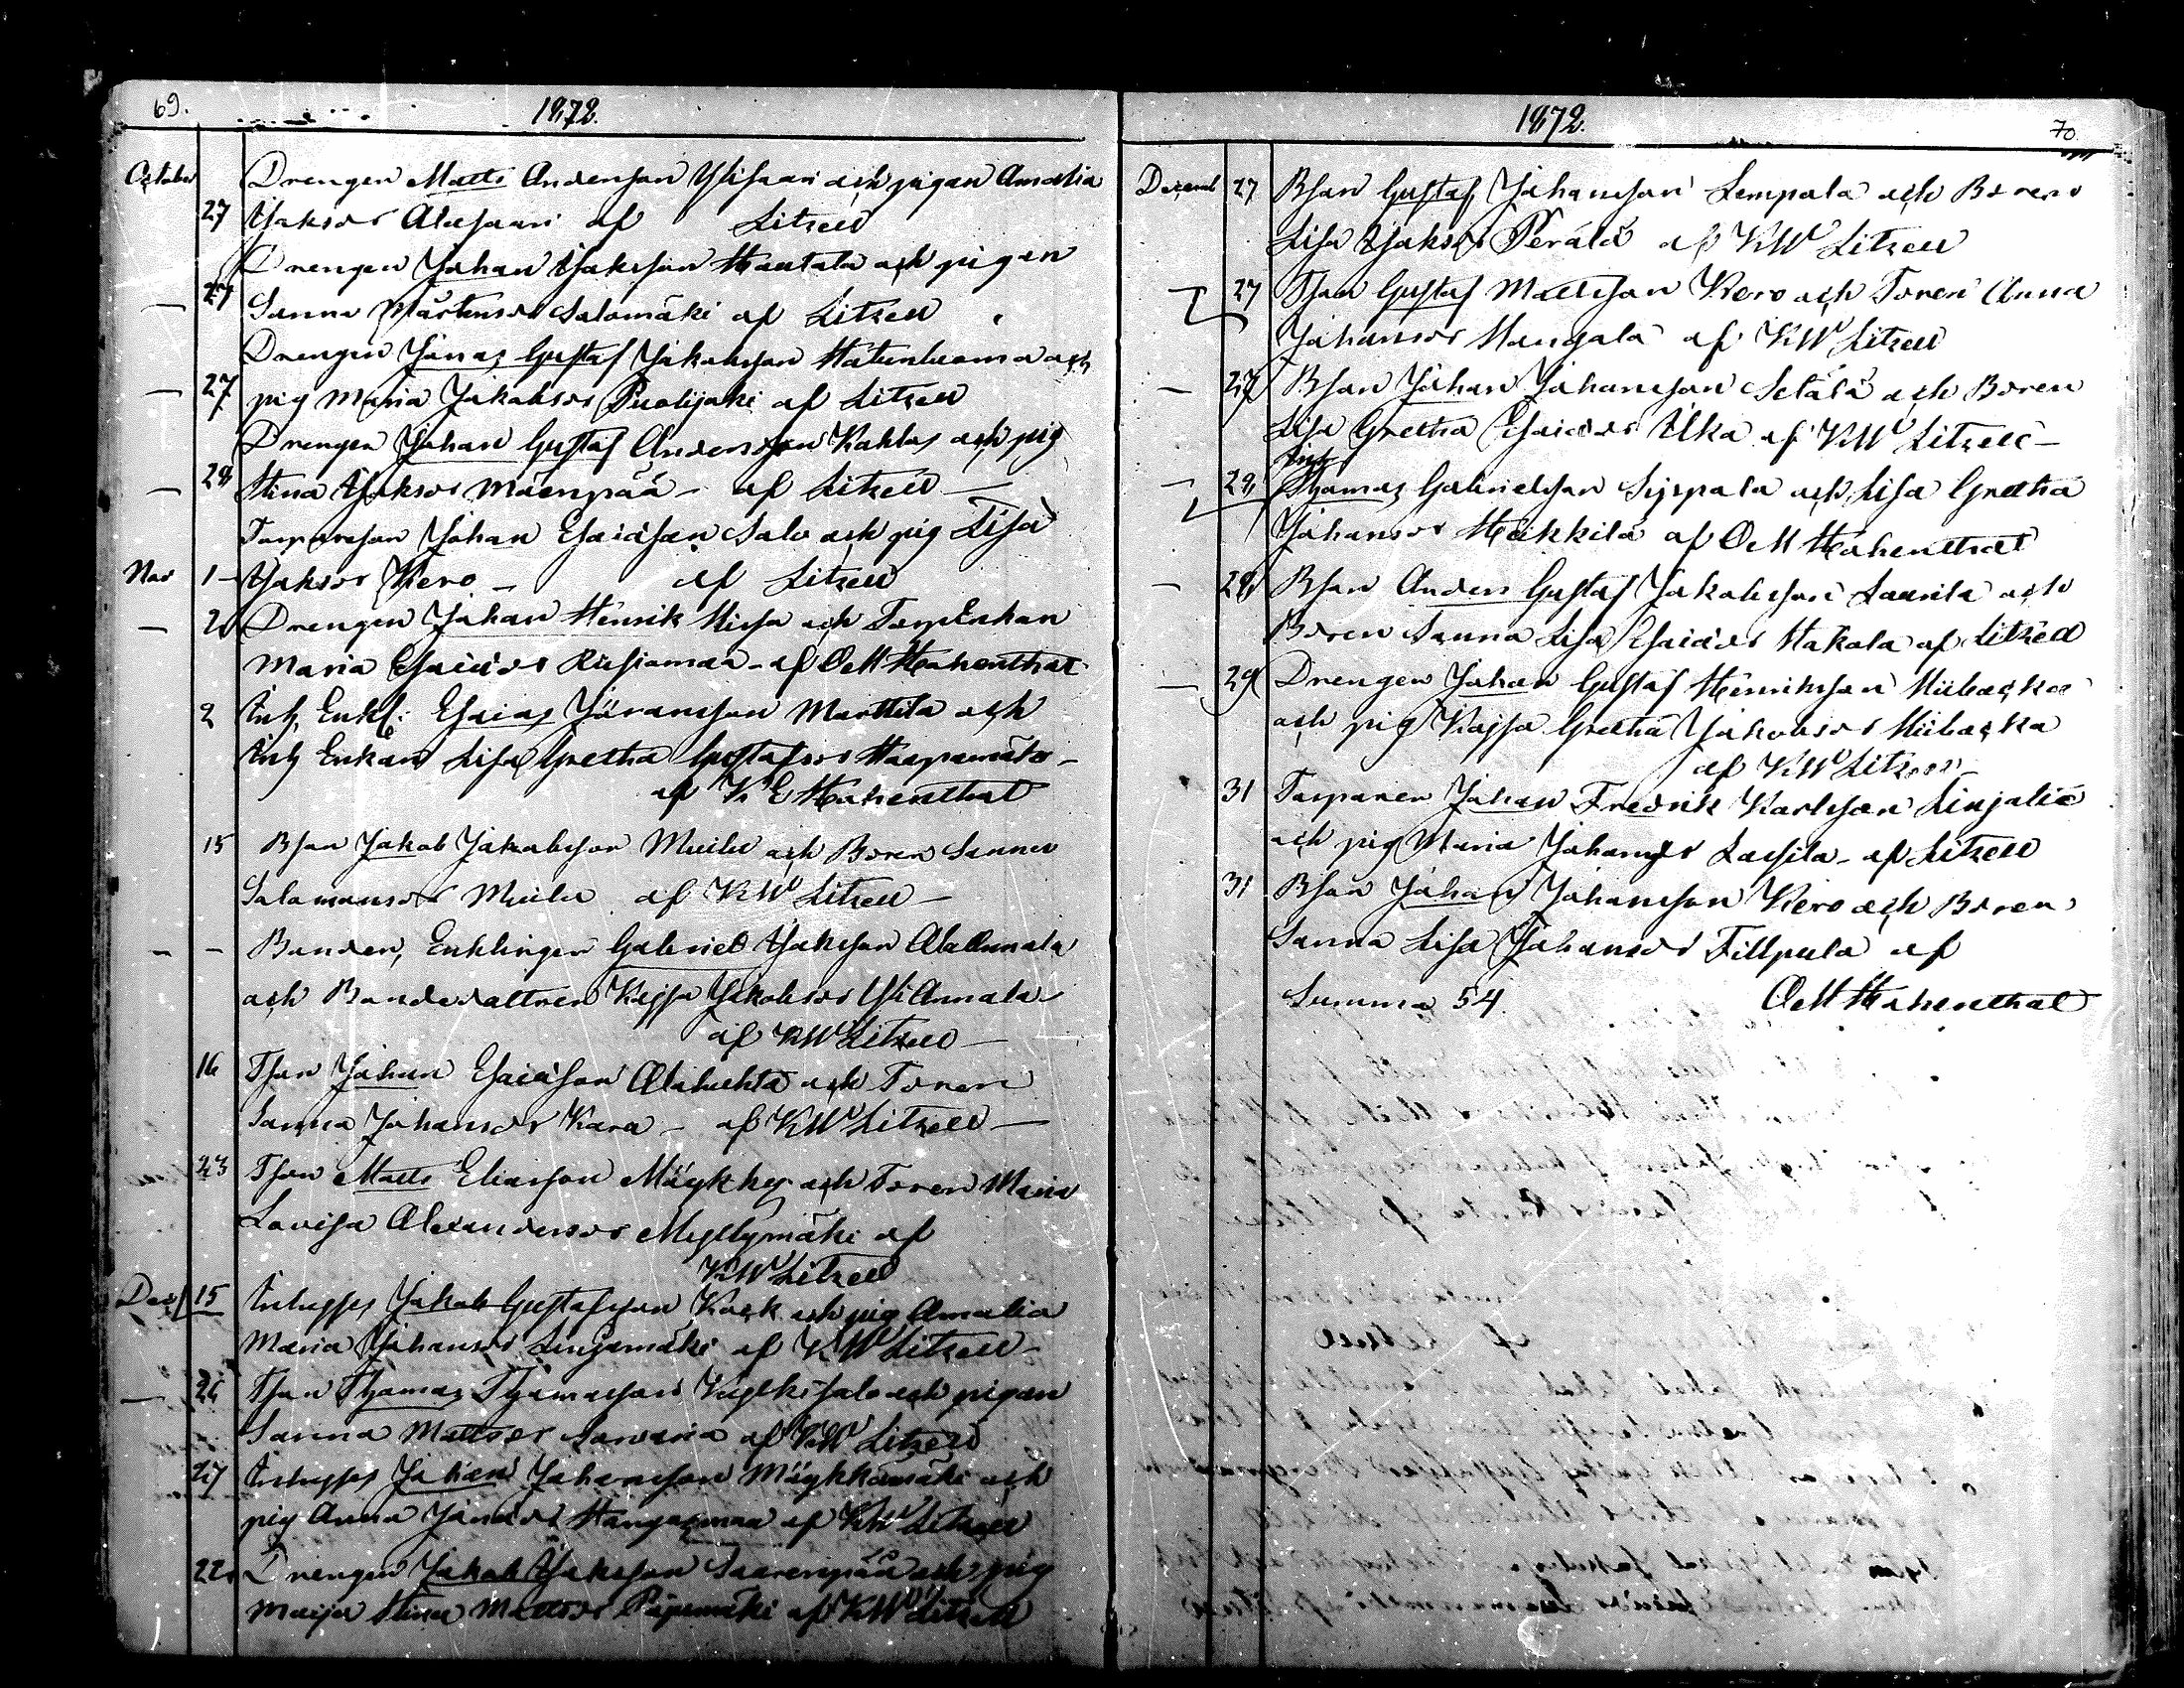 69.
1872.
October Drengen Matts Andersson Ylisaari och pigan Amalia
27 Jaksdr Alasaari af Litzell
Drengen Johan Jaksson Hautala och pigan
— 27 Sanna Mårtensdr Salomäki af Litzell
Drengen Jonas Gustaf Jakobsson Hätinluoma och
— 27 pig Maria Jakobsdr Puolijaki af Litzell
Drengen Johan Gustaf Andersson Kahlas och pig
— 28 Stina Jaksdr Mäenpää - af Litzell —
Torparesson Johan Esaiasson Salo och pig Lisa
Nov 1 - Jaksdr Kero - af Litzell
— 2 Drengen Johan Henrik och TorpEnkan
Maria Esaiadr Risiamaa - af OM Hohenthal
2 Inh. Enkl: Esaias Jöransson Marttila och
Inh Enkan Lisa Gretha Gustafsdr Haapamäki -
af K E Hohenthal
15 Bson Jakob Jakobsson Muilu och Boren Sanna
Salomonsdr Muilu af KW Litzell —
- - Bonden, Enklingen Gabriel Jaksson AlaAnnala
och Bondedottren Kajsa Jakobsdr YliAnnala
af KW Litzell —
16 Tson Johan Esaiasson Alahuhta och Toren
Sanna Johansdr Kara - af KW Litzell —
23 Tson Matts Eliasson och Toren Maria
Lovisa Alexandersdr Myllymäki af
KW Litzell
Dec 15 Inhysses Jakob Gustafsson Kock och pig Amalia
Maria Johansdr Linjamäki af KW Litzell -
— 26 Tson Thomas Thomasson och pigan
Sanna Mattsdr af KW Litzell
27 Inhysses Johan Johansson och
pig Anna Jonaedr Hangasmaa af KW Litzell
22 Drengen Jakob Jaksson Saarenpää och pig
Maija Stina Mattsdr af KW Litzell
1872.
70
Decemb 27 Bson Gustaf Johansson Lempala och Boren
Lisa Jaksdr Perälä af KW Litzell
27 Tson Gustaf Mattsson Kero och Toren Anna
Johansdr Mangala af KW Litzell
— 27 Bson Johan Johansson Setälä och Boren
Lisa Gretha Esaiaedr Ilka af KW Litzell -
— 28 Inh Thomas Gabrielsson och Lisa Gretha
Johansdr Heikkilä af OM Hohenthal
— 28 Bson Anders Gustaf Jakobsson Laurila och
Boren Sanna Lisa Esaiadr Hakola af Litzell
— 29 Drengen Johan Gustaf Henriksson Miibacka
och pig Kajsa Gretha Jakobsdr Miibacka
af KW Litzell
31 Torparen Johan Fredrik Karlsson
och pig Maria Johansdr Lassila - af Litzell
31 Bson Johan Johansson Kero och Boren
Sanna Lisa Johansdr Tillpala af
Summa 54. OM Hohenthal